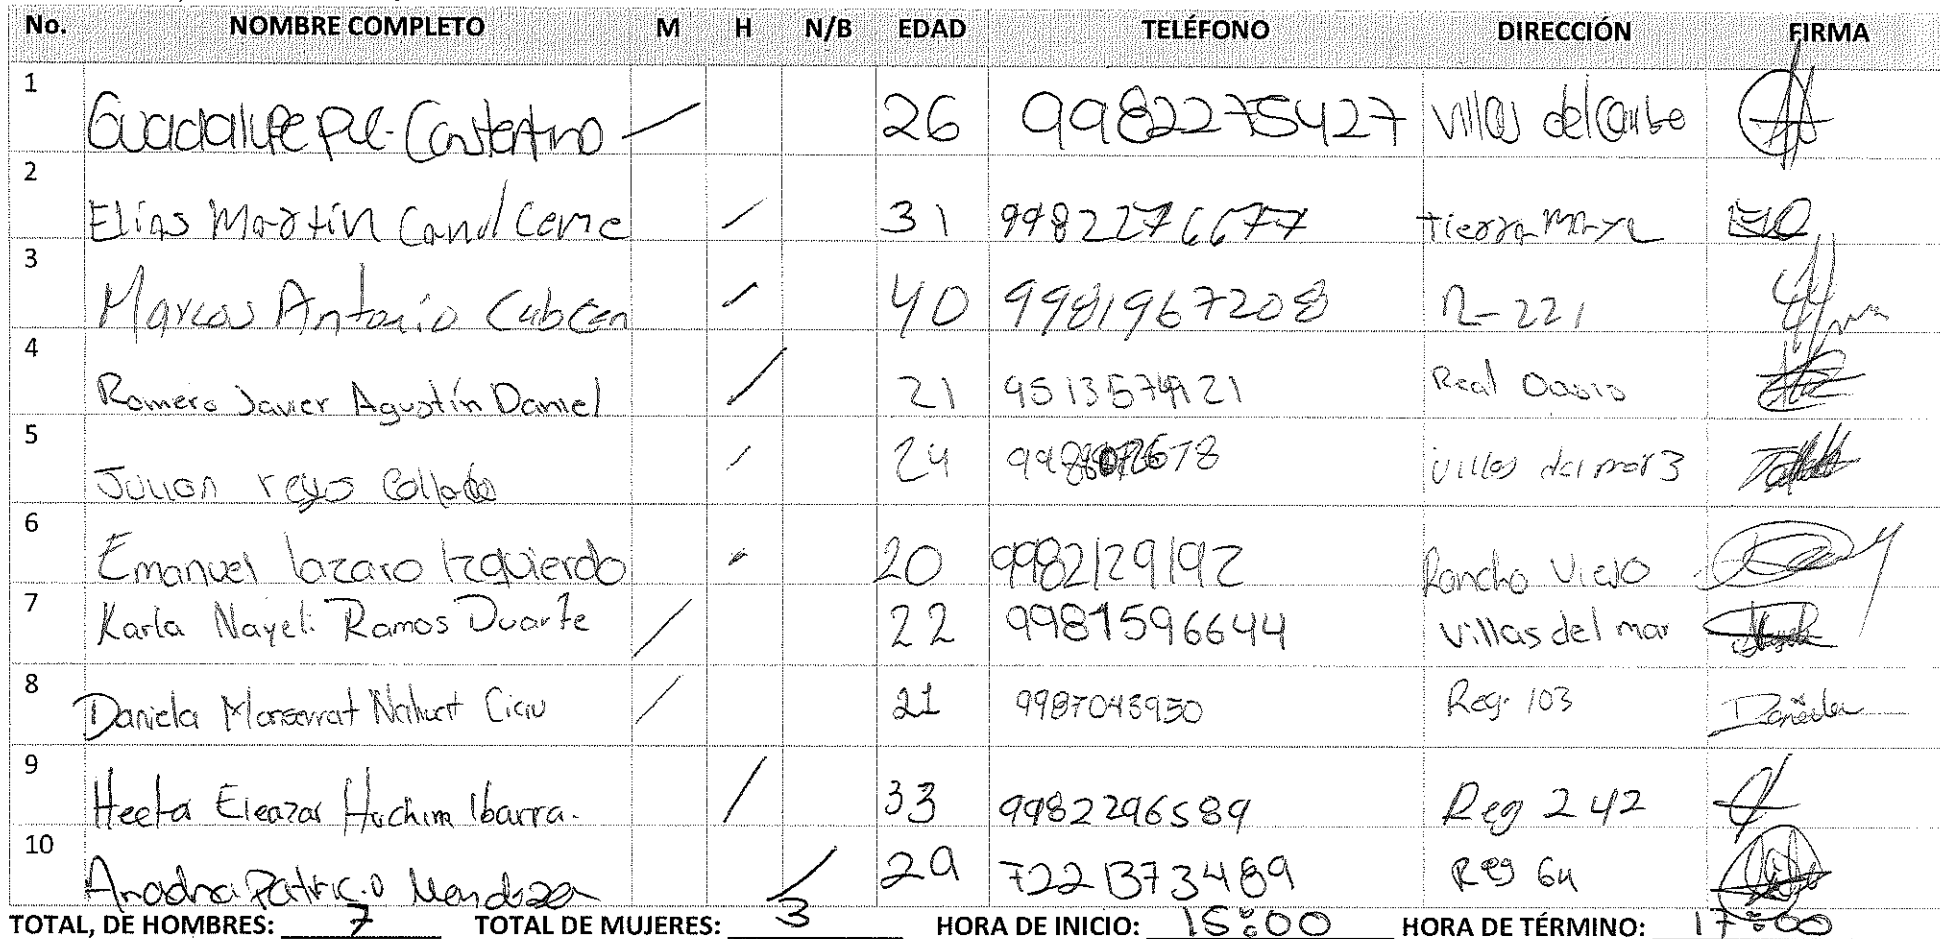 No. NOMBRE COMPLETO M H N/B EDAD TELÉFONO DIRECCIÓN FIRMA
1 Guadalupe / 26 9982275427 Villas del Caribe
2 Elias Martín Canul / 31 9982276677 tierra maya
3 Marcos Antonio / 40 9981967208 R-221
4 Romero Javier Agustín Daniel / 21 Real Oasis
5 Julian reyes Collado / 24 villas del mar 3
6 Emanuel lazaro Izquierdo / 20 9982129192 Rancho Viejo
7 Karla Nayeli Ramos Duarte / 22 9981596644 villas del mar
8 Daniela Monserrat / 21 Reg. 103
9 Eleazar Huchim Ibarra. / 33 9982296589 Reg 242
10 Mendoza / 29 7221373489 Reg 64
TOTAL, DE HOMBRES: 7 TOTAL DE MUJERES: 3 HORA DE INICIO: 15:00 HORA DE TÉRMINO: 17:00